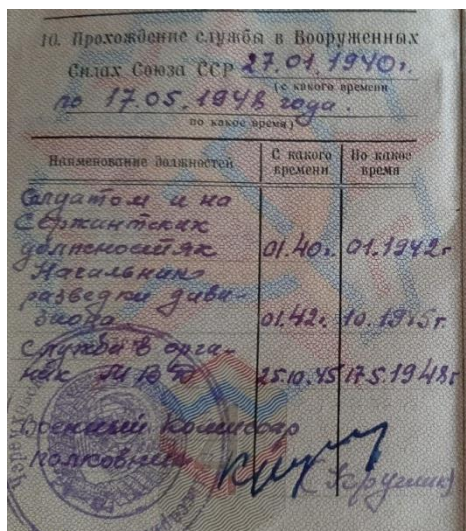 10. Прохождение службы в Вооруженных
Силах Союза ССР 27.01.1940г.
(с какого времени
по 17.05.1948 года.
по какое время)
Наименование должностей С какого времени По какое время
Солдатом и на
Сержантских
должностях 01.40г. 01.1942г
Начальник
разведки диви-
зиона 01.42г. 10.1945г.
Служба в орга-
нах МВД 25.10.45 17.5.1948г
Военный Комиссар
полковник
(Круглик)